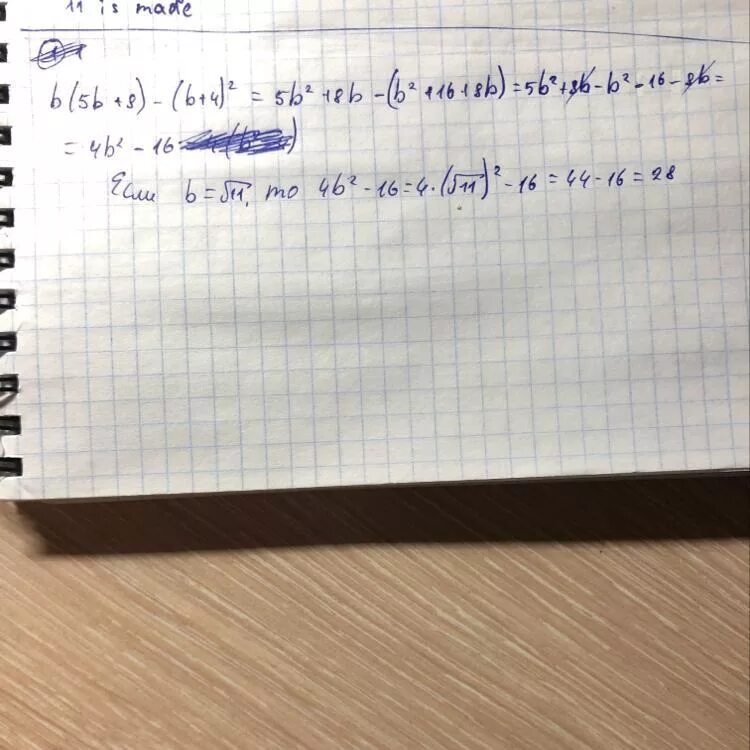 11 is made
b(5b+8) - (b+4)² = 5b² + 8b - (b² + 16 + 8b) = 5b² + 8b - b² - 16 - 8b =
= 4b² - 16
Если b = √11, то 4b² - 16 = 4·(√11)² - 16 = 44 - 16 = 28